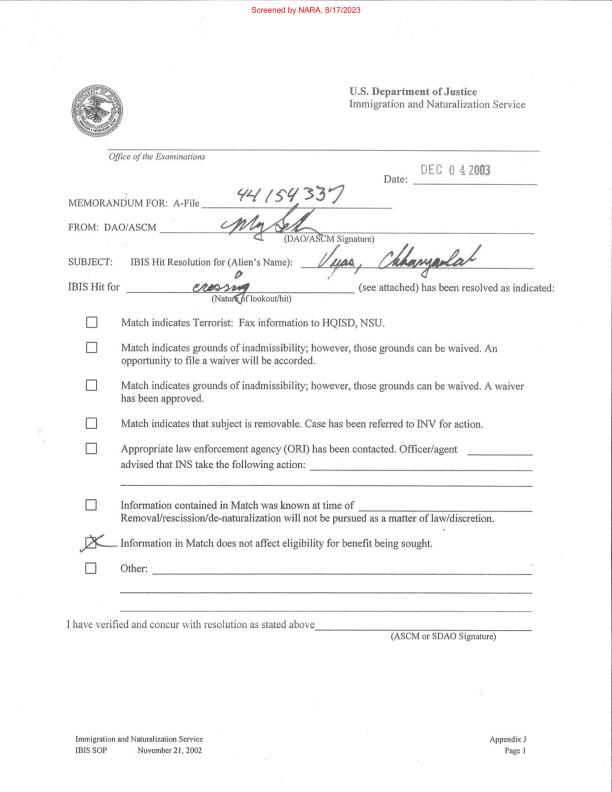 Screened by NARA, 8/17/2023
U.S. Department of Justice
Immigration and Naturalization Service
Office of the Examinations
Date: DEC 04 2003
MEMORANDUM FOR: A-File 44154337
FROM: DAO/ASCM
(DAO/ASCM Signature)
SUBJECT: IBIS Hit Resolution for (Alien's Name): Vyas,
IBIS Hit for crossing (see attached) has been resolved as indicated:
(Nature of lookout/hit)
Match indicates Terrorist: Fax information to HQISD, NSU.
Match indicates grounds of inadmissibility; however, those grounds can be waived. An
opportunity to file a waiver will be accorded.
Match indicates grounds of inadmissibility; however, those grounds can be waived. A waiver
has been approved.
Match indicates that subject is removable. Case has been referred to INV for action.
Appropriate law enforcement agency (ORI) has been contacted. Officer/agent
advised that INS take the following action:
Information contained in Match was known at time of
Removal/rescission/de-naturalization will not be pursued as a matter of law/discretion.
Information in Match does not affect eligibility for benefit being sought.
Other:
I have verified and concur with resolution as stated above
(ASCM or SDAO Signature)
Immigration and Naturalization Service Appendix J
IBIS SOP November 21, 2002 Page 1